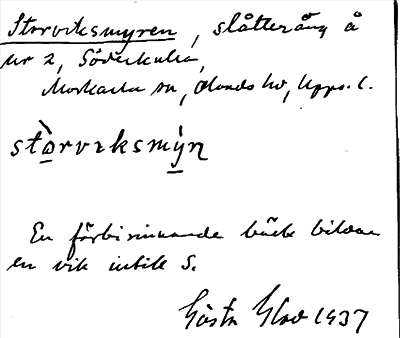 Storviksmyren, slåtteräng å
nr 2, Söderkulla,
Morkarla sn, Olands hd, Upps. l.
stòrvɪksmýn
En förbirinnande bäck bildar
en vik intill S.
Gösta Glad 1937